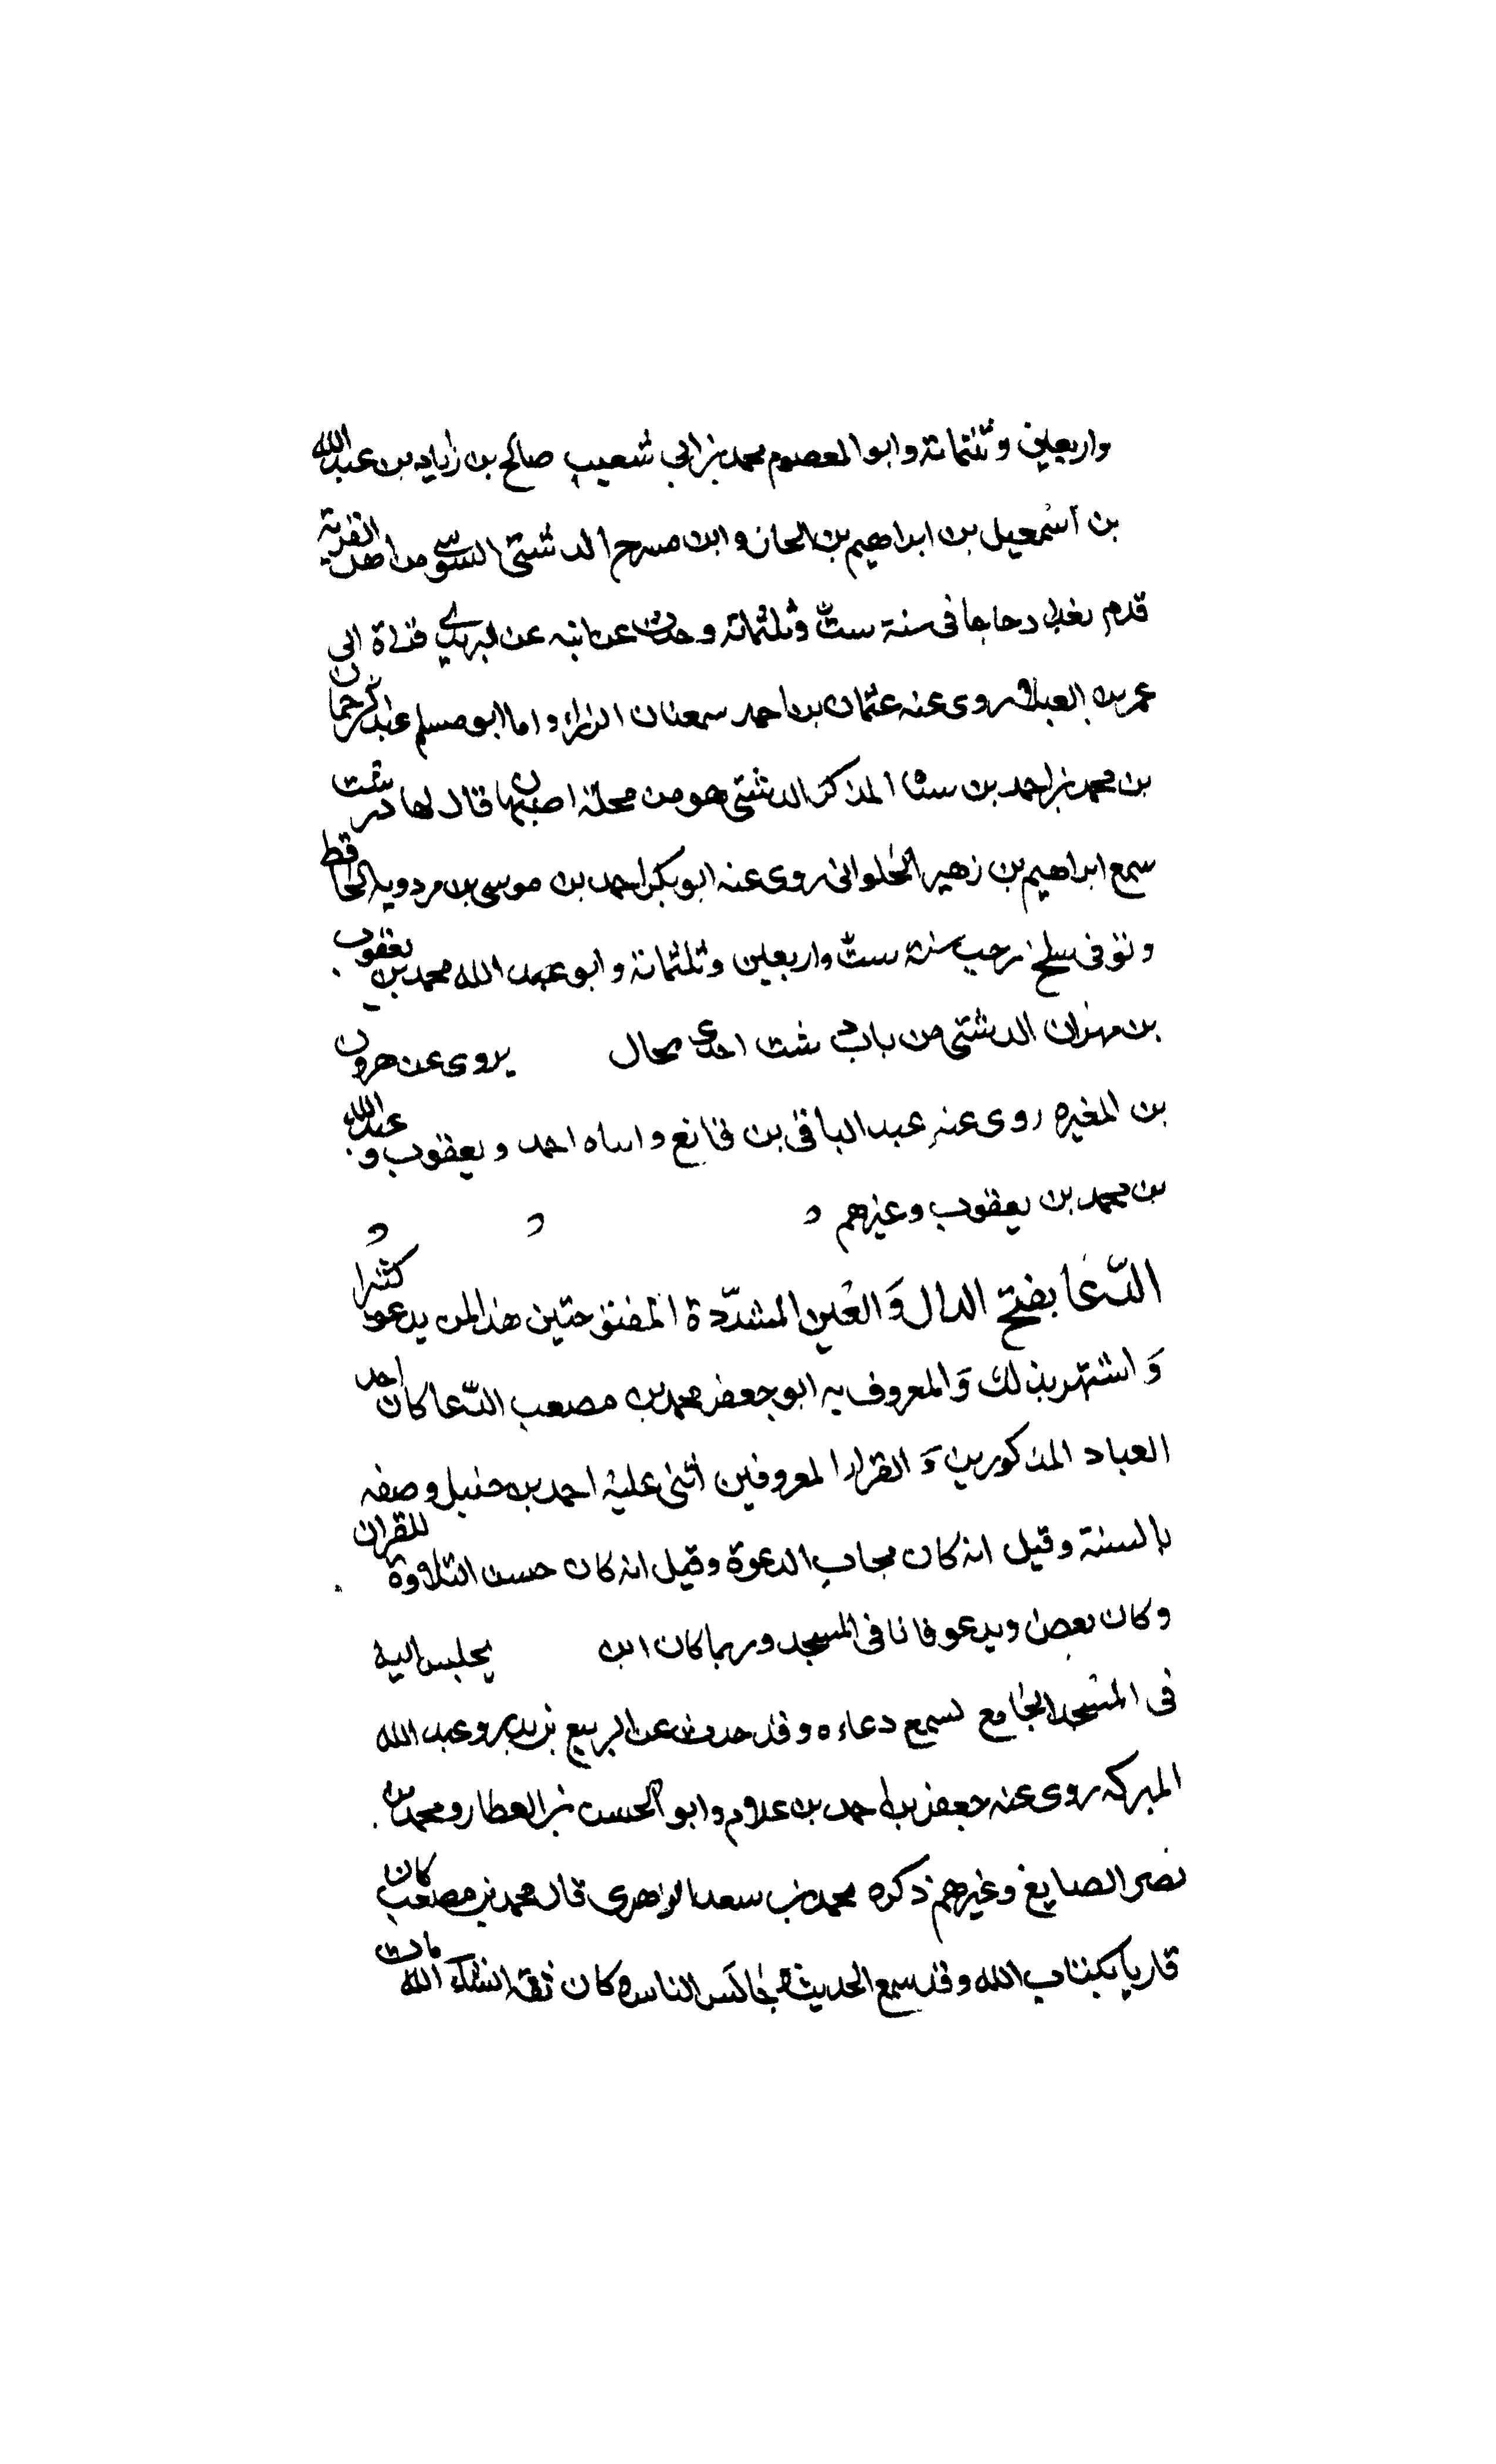 واربعين وثلثمائة وابو المعصوم محمد بن ابي شعيب صالح بن زياد بن عبد الله
بن اسمعيل بن ابراهيم بن الجارود ابن مسرح الدشتي السوسي من اهل القرية
قدم بغداد حاجا في سنة ست وثلثمائة وحدث عن ابيه عن اليزيدي قراءة ابي
عمرو بن العلاء روى عنه عثمان بن احمد سمعان الرزاز واما ابو مسلم عبد الرحمان
بن محمد بن احمد بن سياه المذكر الدشتي هو من محلة اصبهان قال لها در دشت
سمع ابراهيم بن زهير الحلواني روى عنه ابو بكر احمد بن موسى بن مردويه الحافظ
وتوفي سلخ رجب سنة ست واربعين وثلثمائة وابو عبد الله محمد بن يعقوب
بن مهران الدشتي من باب دشت احدى محال يروى عن هرون
بن المغيره روى عنه عبد الباقي بن قانع وابناه احمد ويعقوب وعبد الله
بن محمد بن يعقوب وغيرهم
الدّعا بفتح الدال وَالعين المشدّدة المفتوحتين هذا لمن يدعو كثيرا
وَاشتهر بذلك وَالمعروف به ابو جعفر محمد بن مصعب الدّعا كان احد
العباد المذكورين وَ القراء المعروفين اثنى عليه احمد بن حنبل وصفه
بالسنة وقيل انه كان مجاب الدعوة وقيل انه كان حسن التلاوة للقران
وكان يقص ويدعو قائما في المسجد وربما كان ابن يجلس اليه
في المسجد الجامع لسمع دعاءه وقد حدث عن الربيع بن بدر وعبد الله
المبركه روى عنه جعفر بن احمد بن علام وابو الحسن بن العطار ومحمد بن
نصر الصايغ وغيرهم ذكره محمد بن سعد الزهري قال محمد بن مصعب كان
قاريا بكتاب الله وقد سمع الحديث وجالس الناس وكان ثقه انشاء الله مات